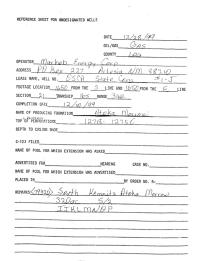 REFERENCE SHEET FOR UNDESIGNATED WELLS
DATE 12/28/89
OIL/GAS Gas
COUNTY Lea
OPERATOR Mewbourne Energy Corp
ADDRESS PO Box 227 Artesia NM 88210
LEASE NAME, WELL NO. State Com #1-J
FOOTAGE LOCATION 1650 FROM THE S LINE AND 1650 FROM THE E LINE
SECTION 21 TOWNSHIP 16S RANGE
COMPLETION DATE 12/10/89
NAME OF PRODUCING FORMATION Atoka Morrow
TOP OF PERFORATIONS
DEPTH TO CASING SHOE
C-123 FILED
NAME OF POOL FOR WHICH EXTENSION WAS ASKED
ADVERTISED FOR HEARING CASE NO.
NAME OF POOL FOR WHICH EXTENSION WAS ASKED
PLACED IN BY ORDER NO. R-
REMARKS South Kemnitz Atoka Morrow